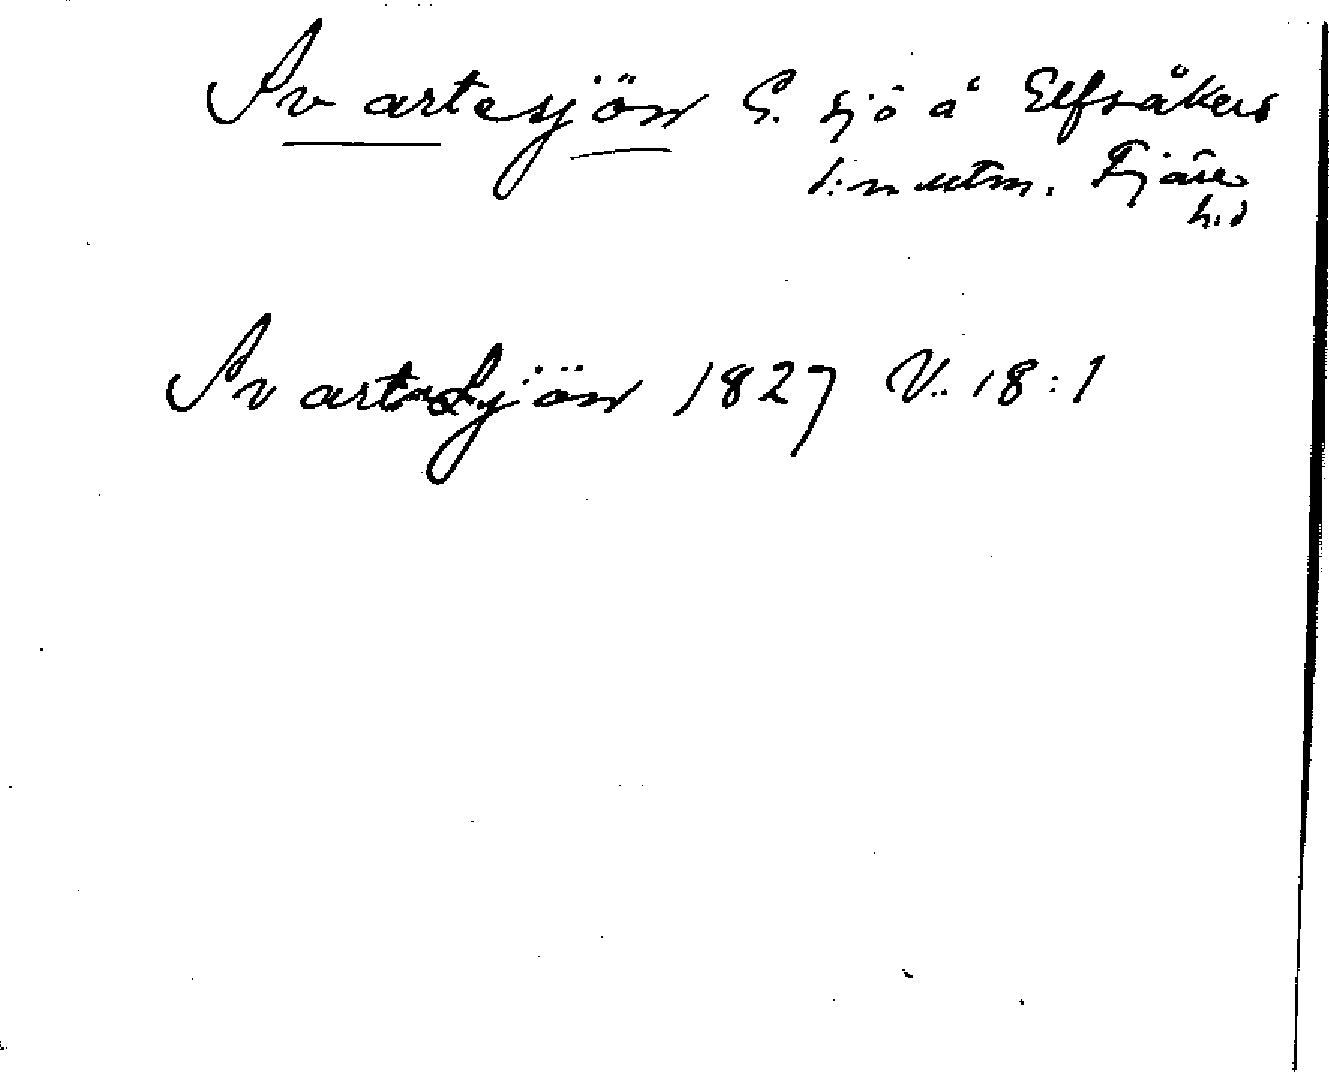 Svartesjön G. sjö å Elfsåkers
s:n utm. Fjäre
h.d
Svarta Sjön 1827 V. 18:1